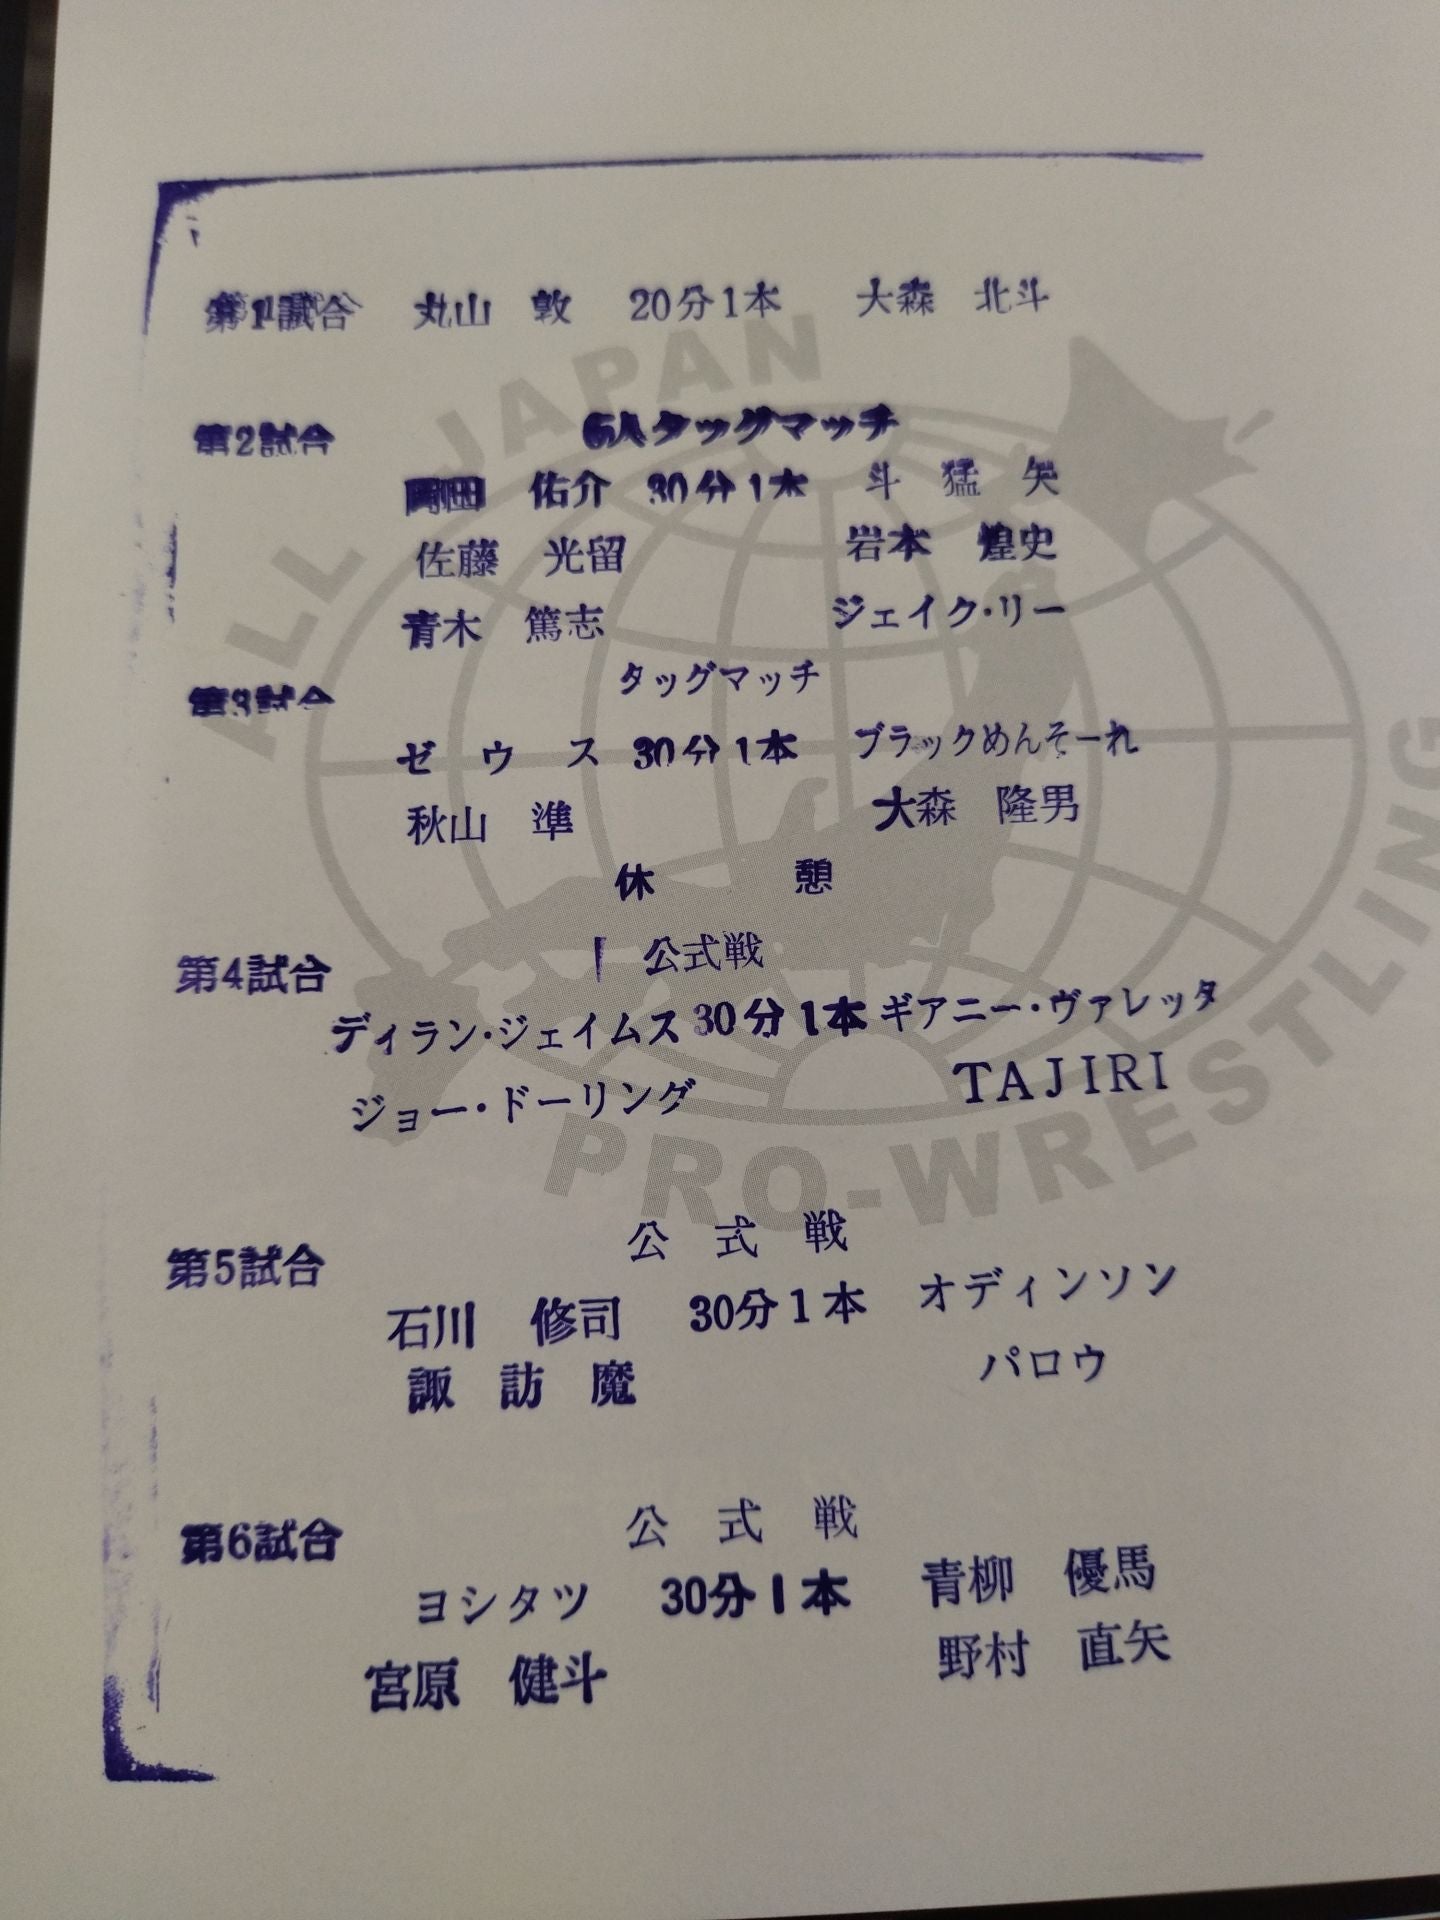 第1試合 丸山 敦 20分1本 大森 北斗
第2試合 6人タッグマッチ
岡田 佑介 30分1本 斗 猛 矢
佐藤 光留 岩本 煌史
青木 篤志 ジェイク・リー
第3試合 タッグマッチ
ゼ ウ ス 30分1本 ブラックめんそーれ
秋山 準 大森 隆男
休 憩
第4試合 公式戦
ディラン・ジェイムス 30分1本 ギアニー・ヴァレッタ
ジョー・ドーリング TAJIRI
第5試合 公 式 戦
石川 修司 30分1本 オディンソン
諏 訪 魔 パロウ
第6試合 公 式 戦
ヨシタツ 30分1本 青柳 優馬
宮原 健斗 野村 直矢
ALL JAPAN
PRO-WRESTLING